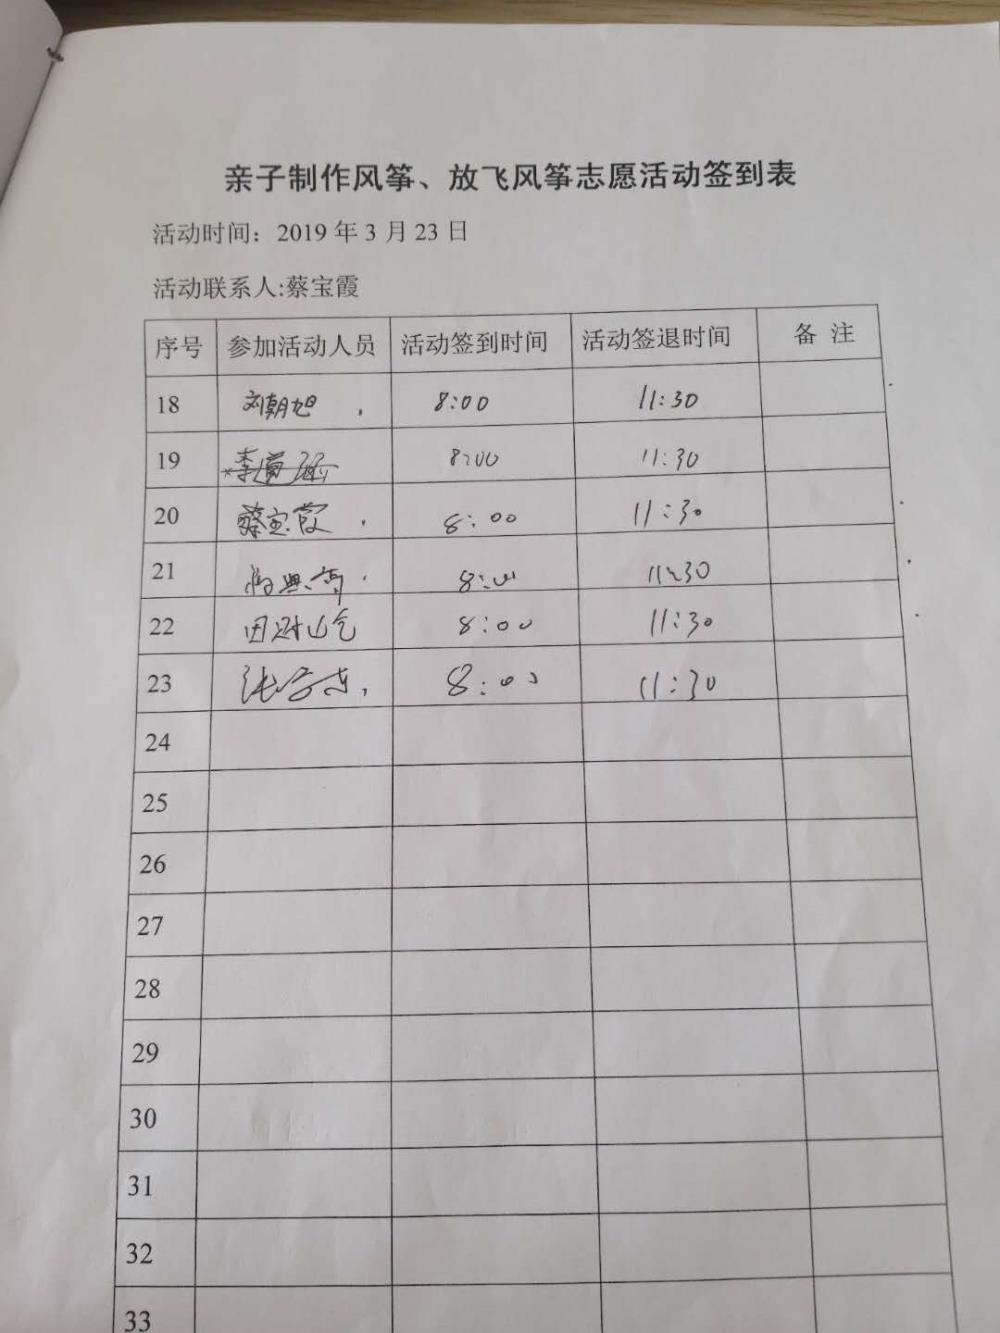 亲子制作风筝、放飞风筝志愿活动签到表
活动时间：2019 年 3 月 23 日
活动联系人:蔡宝霞
序号 参加活动人员 活动签到时间 活动签退时间 备 注
18 刘朝旭 8:00 11:30
19 8:00 11:30
20 蔡宝霞 8:00 11:30
21 8:00 11:30
22 8:00 11:30
23 8:00 11:30
24
25
26
27
28
29
30
31
32
33